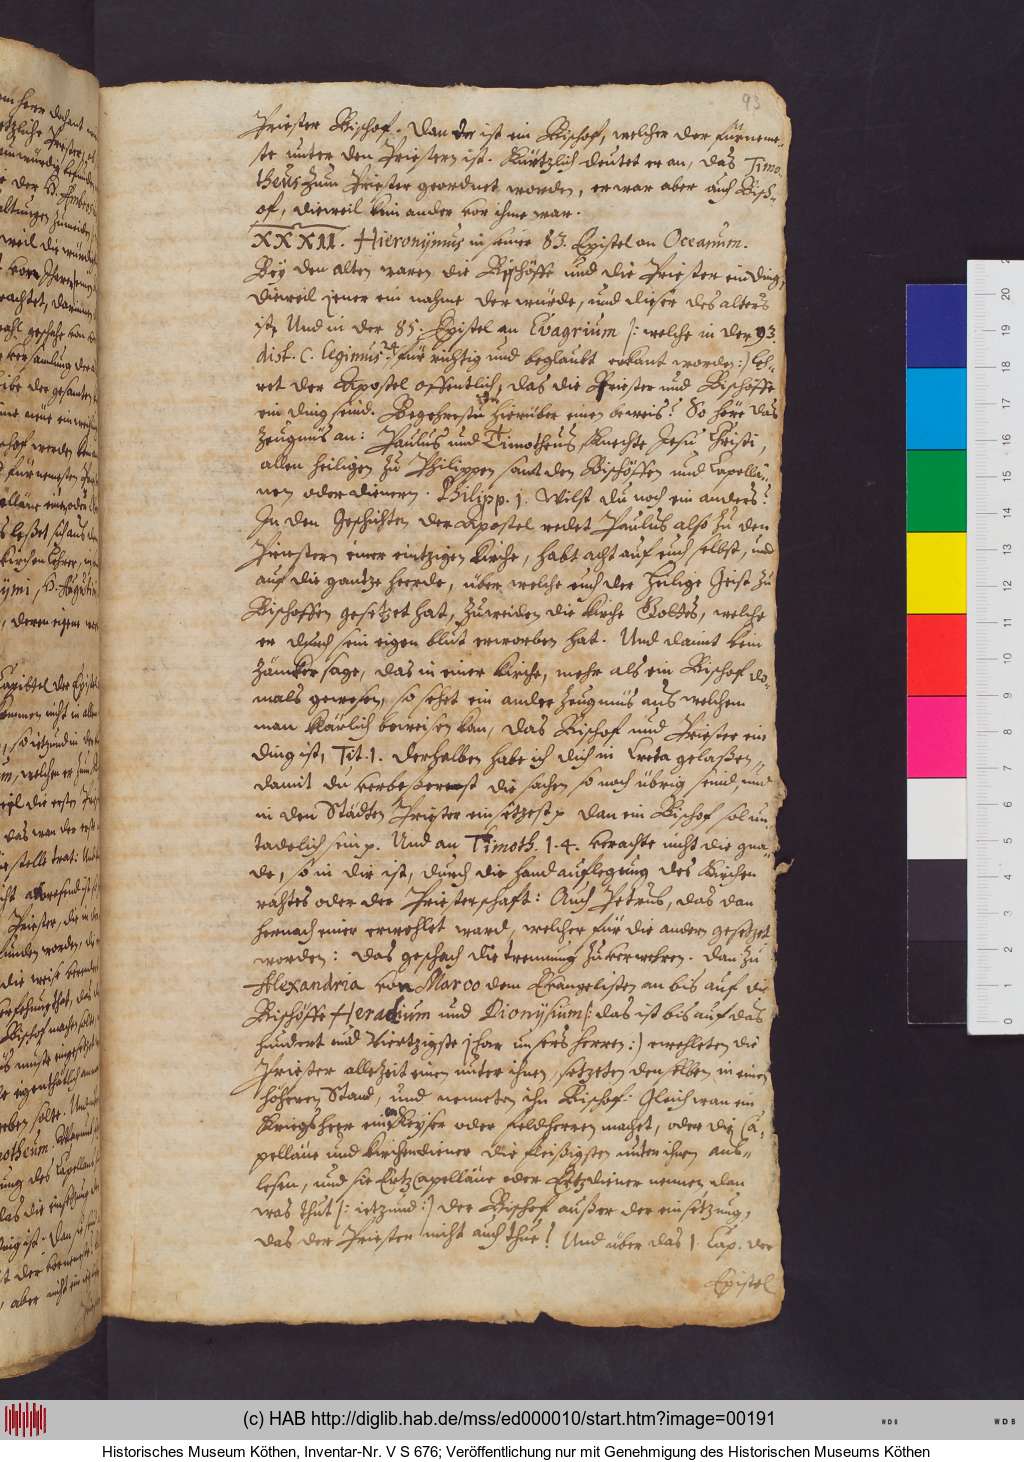 93
Priester Bischof. Dan der ist ein Bischof, welcher der fürneme-
ste unter den Priestern ist. Kürtzlich deutet er an, das Timo-
theus zum Priester geordnet worden, er war aber auch Bisch-
of, dieweil kein ander vor ihme war.
XXXII. Hieronymus in seiner 83. Epistel an Oceanum.
Bey den alten waren die Bischöffe und die Priester ein ding,
dieweil jener ein nahme der würde, und dieser des alters
ist. Und in der 85. Epistel an Evagrium /: welche in der 93.
dist. C. Legimus 24. für richtig und beglaubt erkant worden :/ leh-
ret der Apostel öffentlich, das die Priester und Bischöffe
ein ding seind. Begehrestu hierüber einen beweis? So höre das
Zeugnüs an: Paulus und Timotheus, Knechte Jesu Christi,
allen heiligen zu Philippen samt den Bischöffen und Capellä-
nen oder dienern. Philipp. 1. Wilst du noch ein anders?
In den Geschichten der Apostel redet Paulus also zu den
Priestern einer eintzigen Kirche, habt acht auf euch selbst, und
auf die gantze heerde, über welche euch der Heilige Geist zu
Bischoffen gesetzet hat, zu weiden die Kirche Gottes, welche
er durch sein eigen blut erworben hat. Und damit kein
Zäncker sage, das in einer Kirche, mehr als ein Bischof da-
mals gewesen, so sehet ein ander Zeugnüs aus welchem
man klärlich beweisen kan, das Bischof und Priester ein
ding ist, Tit. 1. derhalben habe ich dich in Creta gelaßen,
damit du verbeßerest die sachen so noch übrig seind, und
in den Städten Priester einsetzest p. dan ein Bischof sol un-
tadelich sein p. Und an Timoth. 1. 4. verachte nicht die gna-
de, so in dir ist, durch die handauflegung des Kirchen
rahtes oder der Priesterschaft: Auch Petrus, das dan
hernach einer erwehlet ward, welcher für die andern gesetzet
worden: das geschach die trennung zu verwehren. Dan zu
Alexandria von Marco dem Evangelisten an bis auf die
Bischöffe Heraclium und Dionysium /: das ist bis auf das
hundert und Viertzigste jhar unsers herren :/ erwehleten die
Priester allezeit einen unter ihnen, setzeten denselben in einen
höheren Stand, und nenneten ihn Bischof: Gleich wan ein
Kriegsheer einen Keyser oder feldherren machet, oder die Ca-
pelläne und Kirchendiener die fleißigsten unter ihnen aus-
lesen, und sie Ertzcapelläne oder Ertzdiener nennen, dan
was thut /: ietzund :/ der Bischof außer der einsetzung,
das der Priester nicht auch thue? Und über das 1. Cap. der
Epistel
(c) HAB http://diglib.hab.de/mss/ed000010/start.htm?image=00191
WDB
WDB
Historisches Museum Köthen, Inventar-Nr. V S 676; Veröffentlichung nur mit Genehmigung des Historischen Museums Köthen